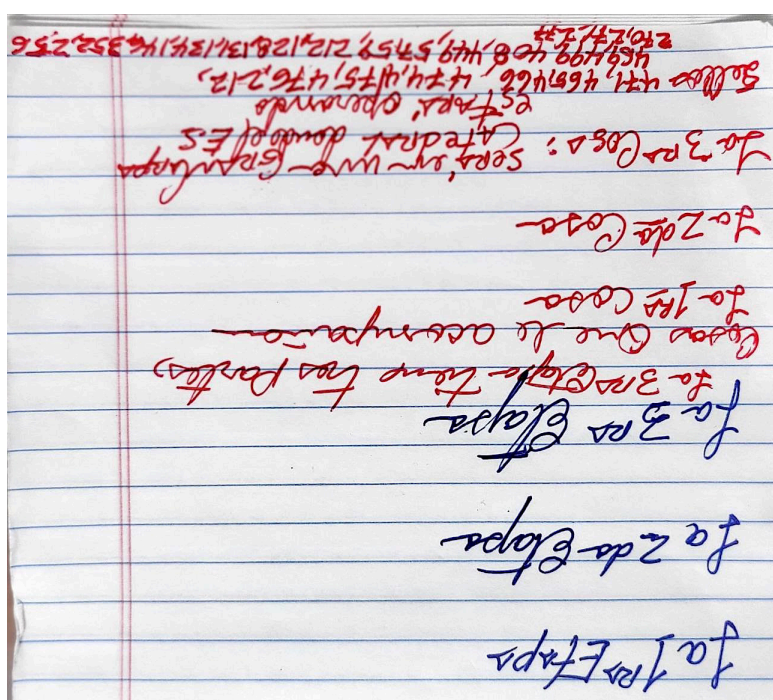 La 1ra Etapa
La 2da Etapa
La 3ra Etapa
La 3ra Etapa tiene tres partes,
Cosas Que le acompañan
La 1ra Cosa
La 2da Cosa
La 3ra Cosa: será en una Gran Carpa
CAtedral donde él ES
esTARá operando
Sellos 471, 465, 466, 474, 475, 476, 212,
459, 499, 408, 449, 57, 59, 212, 128, 131, 134, 146, 352, 256
270, 271, 277